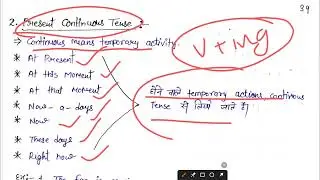 39
2. Present Continuous Tense :-
→ Continuous means temporary activity.
* At Present
* At this Moment
* At that Moment
* Now-a-days
* Now
* These days
* Right now
V+ing
होने वाले temporary actions continous
Tense में लिखे जाते हैं।